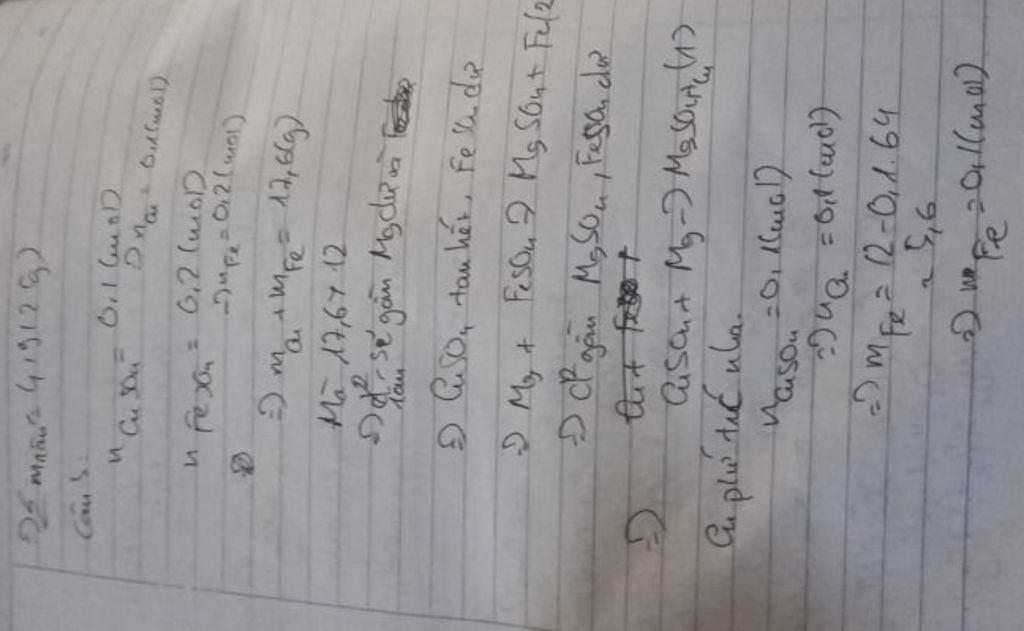 => Σ m muối = 4,912 (g)
Câu 3:
n CuSO4 = 0,1 (mol)
=> n Cu = 0,1 (mol)
n FeSO4 = 0,2 (mol)
=> n Fe = 0,2 (mol)
=> m Cu + m Fe = 17,6 (g)
Mà 17,6 > 12
=> d² sẽ gồm Mg dư và
=> CuSO4 tan hết, FeSO4 dư
=> Mg + FeSO4 => MgSO4 + Fe (2
=> d² gồm MgSO4, FeSO4 dư
=>
CuSO4 + Mg -> MgSO4 + Cu (1)
Cu phứ trc nha.
n CuSO4 = 0,1 (mol)
=> n Cu = 0,1 (mol)
=> m Fe = 12 - 0,1.64
= 5,6
=> n Fe = 0,1 (mol)